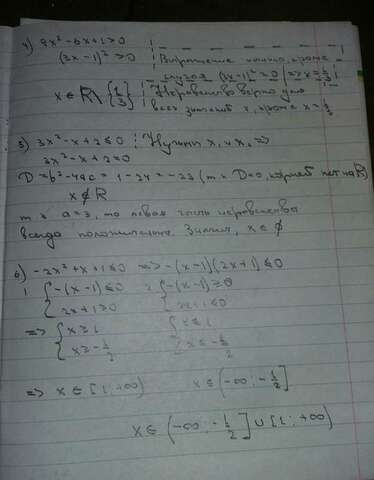 4) 9x² - 6x + 1 > 0
(3x - 1)² > 0
x ∈ R \ {1/3}
Выражение , кроме
случая (3x - 1)² = 0 => x = 1/3
Неравенство верно для
всех значений x, кроме x = 1/3
5) 3x² - x + 2 ≤ 0 Нужны x₁ и x₂ =>
3x² - x + 2 = 0
D = b² - 4ac = 1 - 24 = -23 (т.к D<0, корней нет на R)
x ∉ R
т.к a = 3, то левая часть неравенства
всегда положительна. Значит, x ∈ ∅
6) -2x² + x + 1 ≤ 0 => -(x - 1)(2x + 1) ≤ 0
1 { -(x - 1) ≤ 0 2 { -(x - 1) ≥ 0
2x + 1 ≥ 0 2x + 1 ≤ 0
=> { x ≥ 1 { x ≤ 1
x ≥ -1/2 x ≤ -1/2
=> x ∈ [1; +∞) x ∈ (-∞; -1/2]
x ∈ (-∞; -1/2] ∪ [1; +∞)